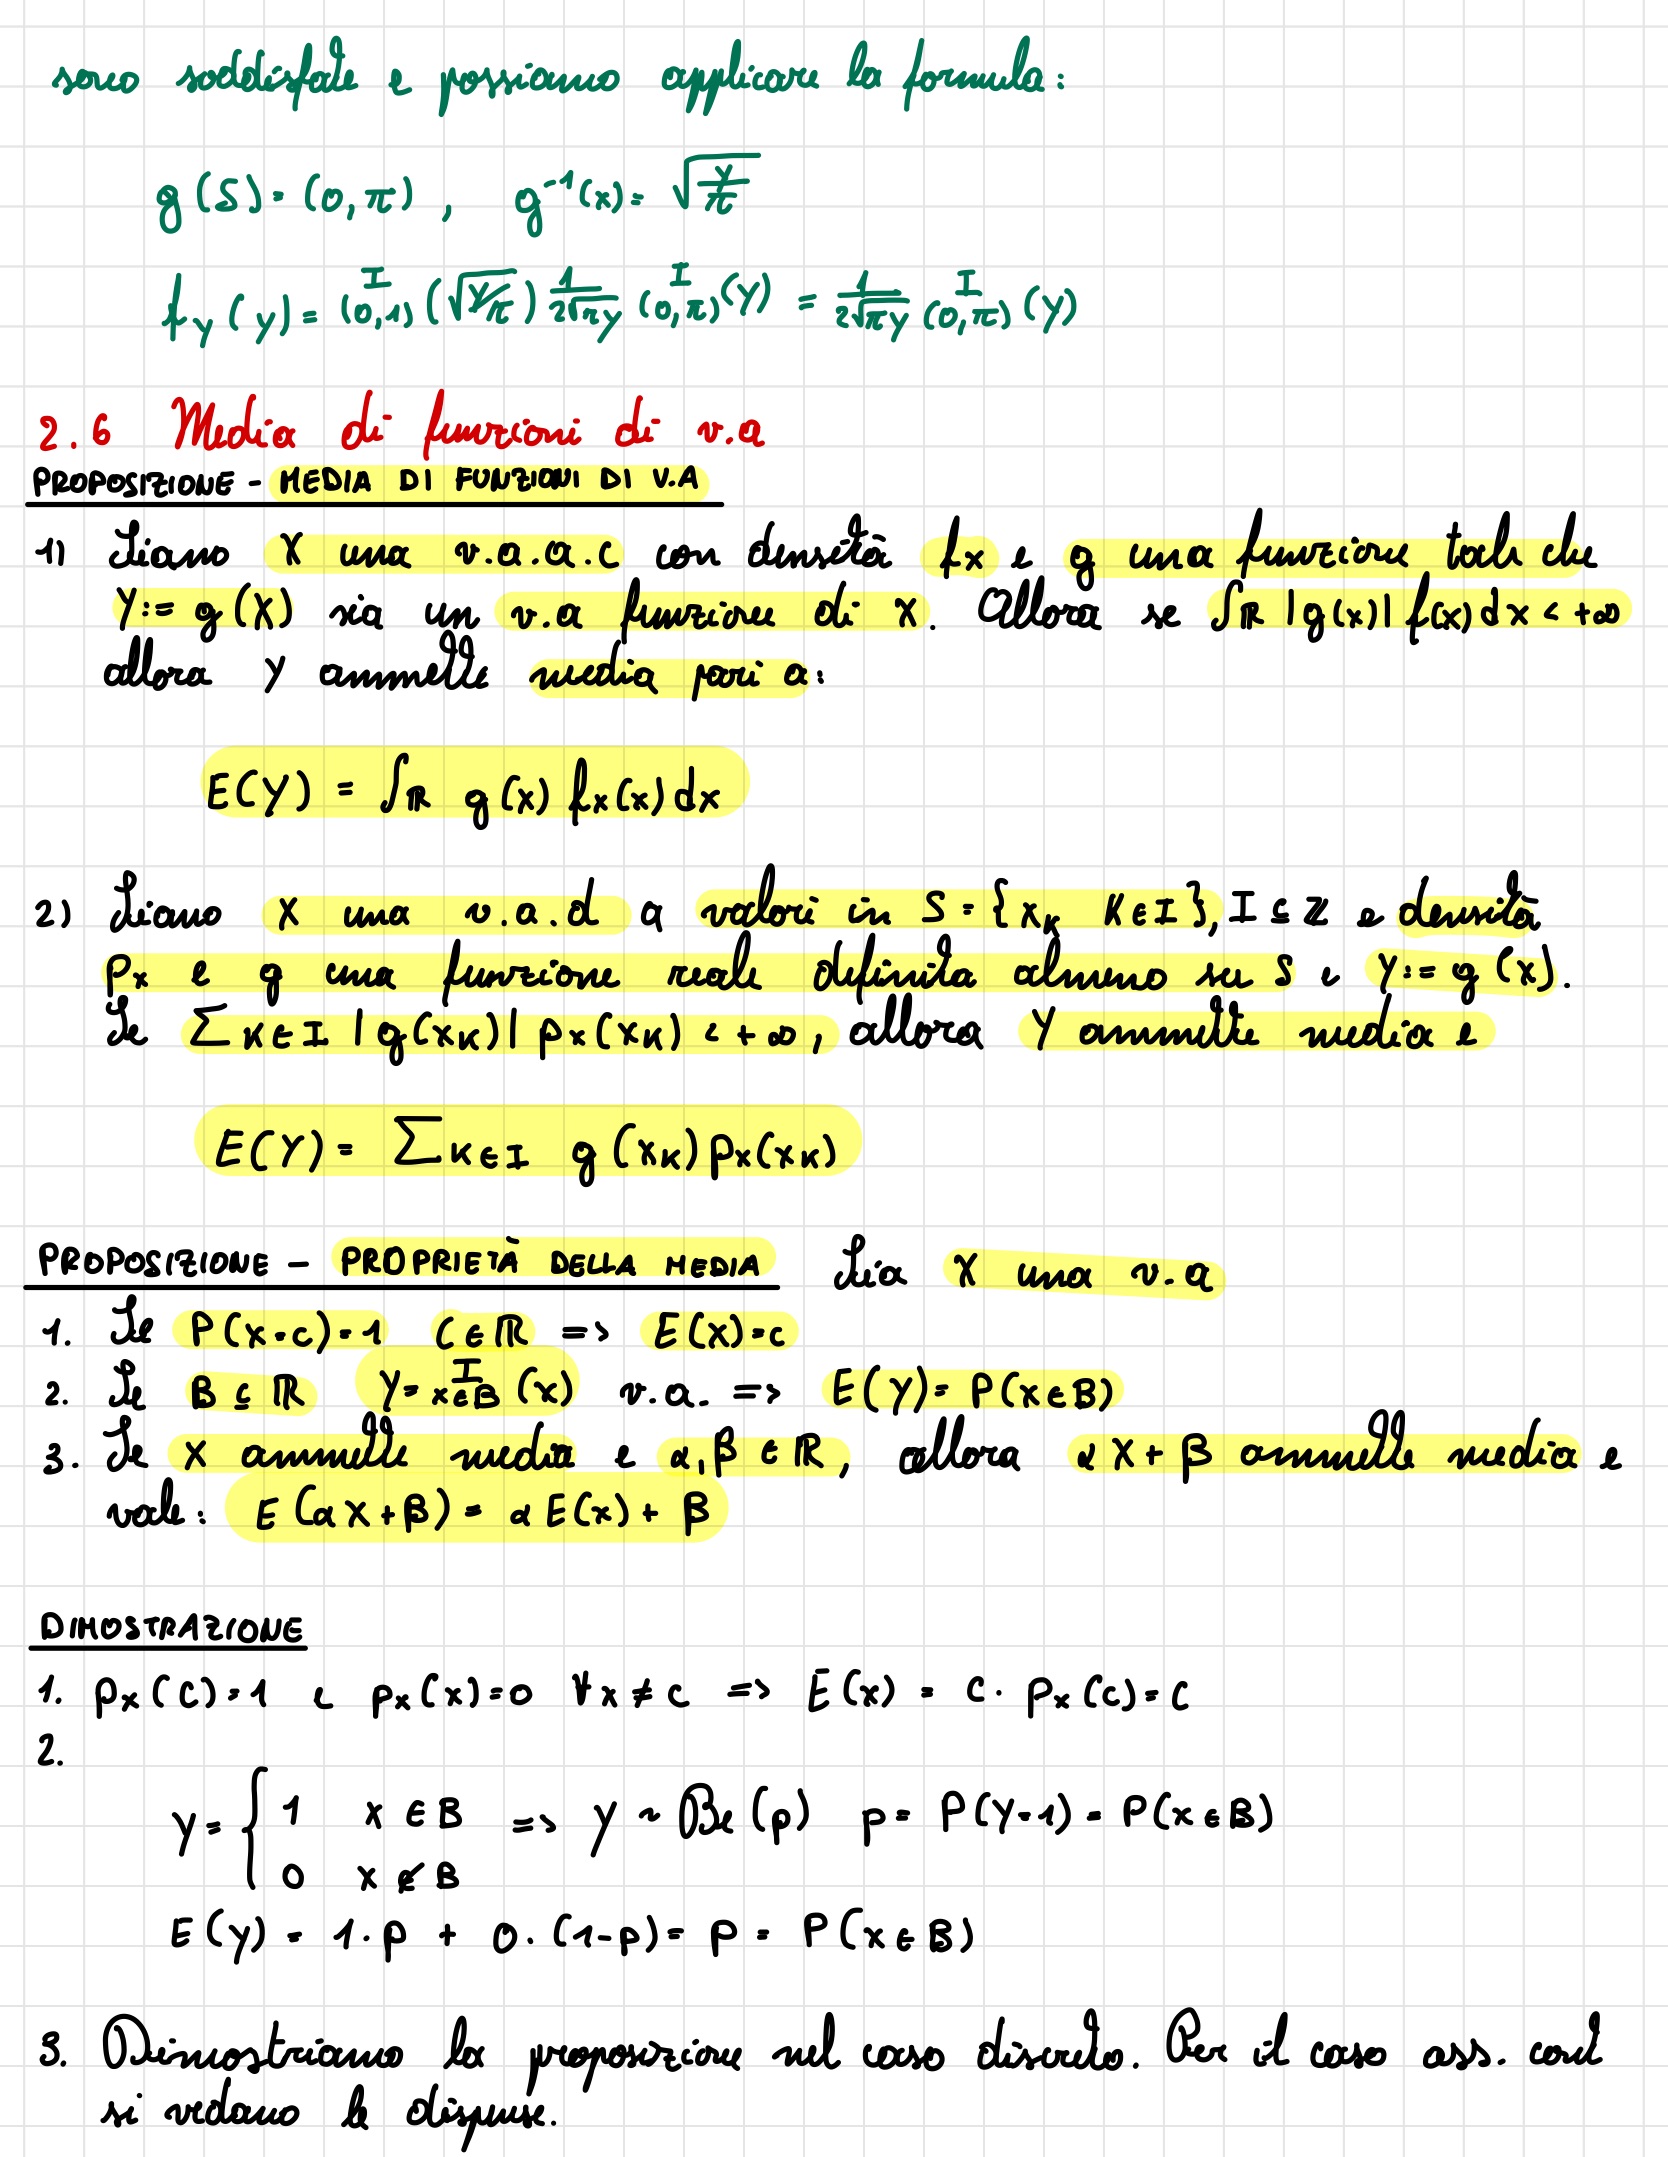 sono soddisfatte e possiamo applicare la formula:
g(S)=(0,π) , g⁻¹(x)= √(y/π)
f_Y(y)= I(0,1) (√(y/π)) 1/(2√(πy)) I(0,π)(y) = 1/(2√(πy)) I(0,π)(y)
2.6 Media di funzioni di v.a
PROPOSIZIONE - MEDIA DI FUNZIONI DI V.A
1) Siano X una v.a.a.c con densità fx e g una funzione tale che
Y:= g(X) sia un v.a funzione di X. Allora se ∫ℝ |g(x)| f(x)dx < +∞
allora Y ammette media pari a:
E(Y) = ∫ℝ g(x) fx(x)dx
2) Siano X una v.a.d a valori in S={xk K∈I}, I⊆ℤ e densità
px e g una funzione reale definita almeno su S e Y:= g(x).
Se ∑K∈I |g(xK)| px(xK) < +∞, allora Y ammette media e
E(Y)= ∑K∈I g(xK)px(xK)
PROPOSIZIONE - PROPRIETÀ DELLA MEDIA Sia X una v.a
1. Se P(x=c)=1 C∈ℝ => E(x)=c
2. Se B⊆ℝ Y= I x∈B (x) v.a. => E(y)= P(x∈B)
3. Se X ammette media e α,β∈ℝ, allora αX+β ammette media e
vale: E(αX+β)= αE(x)+β
DIMOSTRAZIONE
1. px(C)=1 e px(x)=0 ∀x≠c => E(x) = c·px(c)=c
2.
y= { 1 x∈B => y ~ Be(p) p= P(Y=1)= P(x∈B)
0 x∉B
E(y) = 1·p + 0·(1-p)= p = P(x∈B)
3. Dimostriamo la proposizione nel caso discreto. Per il caso ass. cont
si vedano le dispense.